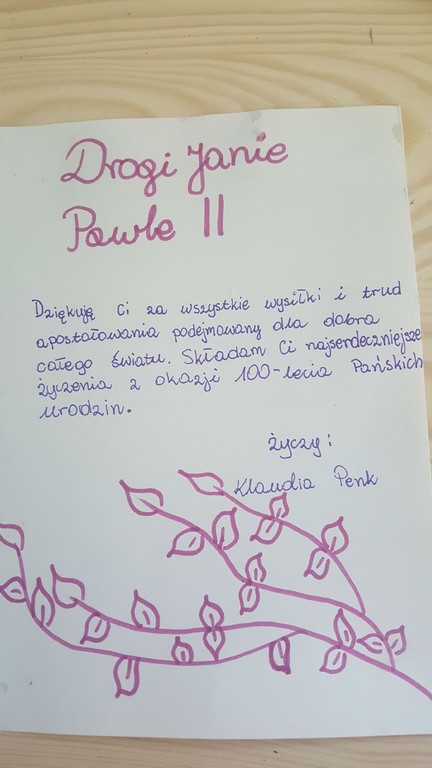 Drogi Janie
Pawle II
Dziękuję Ci za wszystkie wysiłki i trud
apostołowania podejmowany dla dobra
całego świata. Składam Ci najserdeczniejsze
życzenia z okazji 100-lecia Pańskich
urodzin.
życzy:
Klaudia Penk